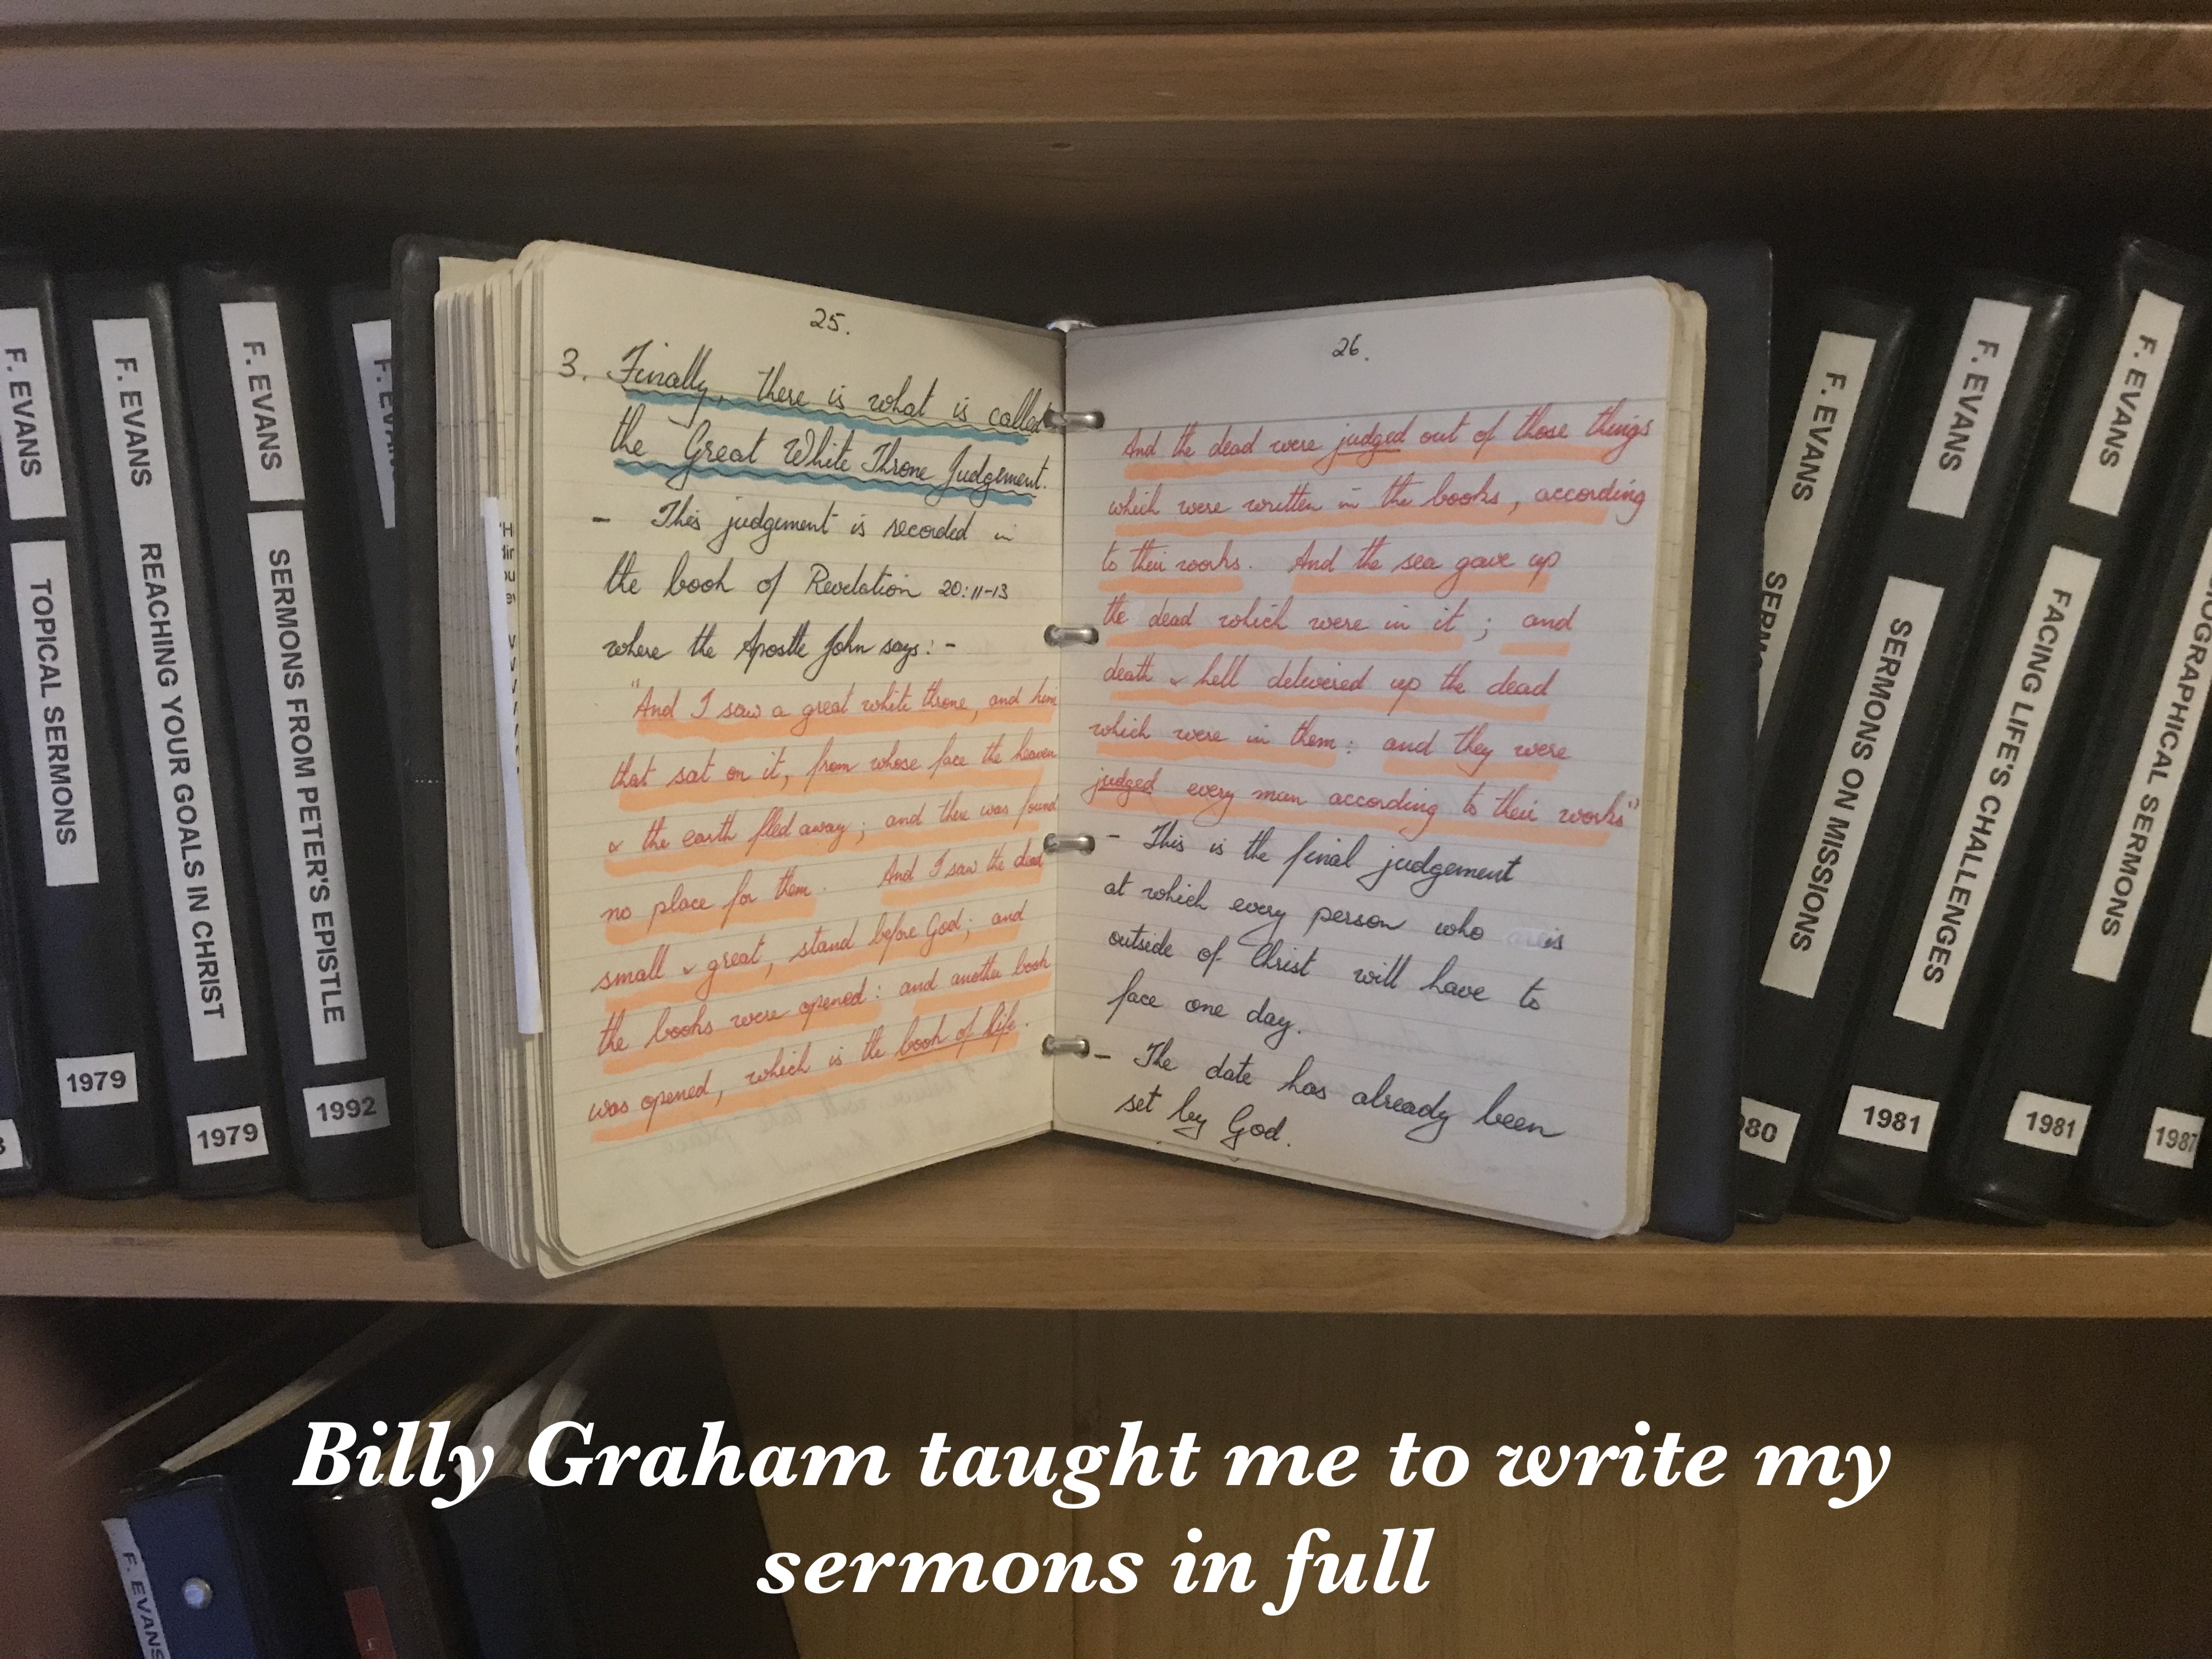 F. EVANS
TOPICAL SERMONS
1979
F. EVANS
REACHING YOUR GOALS IN CHRIST
1979
F. EVANS
SERMONS FROM PETER'S EPISTLE
1992
25.
3. Finally, there is what is called
the Great White Throne Judgement.
- This judgement is recorded in
the book of Revelation 20:11-13
where the Apostle John says:-
"And I saw a great white throne, and him
that sat on it, from whose face the heaven
& the earth fled away; and there was found
no place for them. And I saw the dead
small & great, stand before God; and
the books were opened: and another book
was opened, which is the book of life.
26.
And the dead were judged out of those things
which were written in the books, according
to their works. And the sea gave up
the dead which were in it; and
death & hell delivered up the dead
which were in them: and they were
judged every man according to their works"
- This is the final judgement
at which every person who is
outside of Christ will have to
face one day.
- The date has already been
set by God.
F. EVANS
F. EVANS
SERMONS ON MISSIONS
1981
F. EVANS
FACING LIFE'S CHALLENGES
1981
BIOGRAPHICAL SERMONS
1987
F. EVANS
Billy Graham taught me to write my
sermons in full